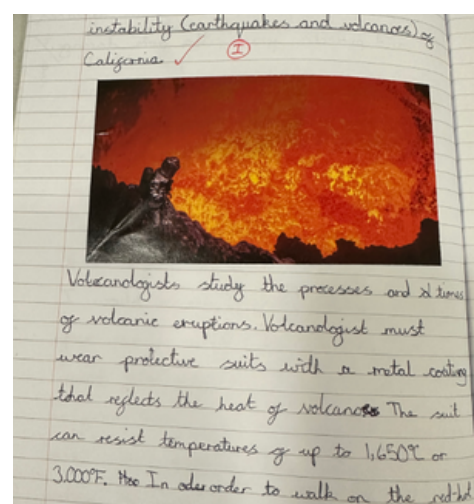 instability (earthquakes and volcanoes) of
California
I
Volocanologists study the processes and times
of volcanic eruptions. Volcanologist must
wear protective suits with a metal coating
that reflects the heat of volcanoes The suit
can resist temperatures of up to 1,650°C or
3,000°F. In order to walk on the